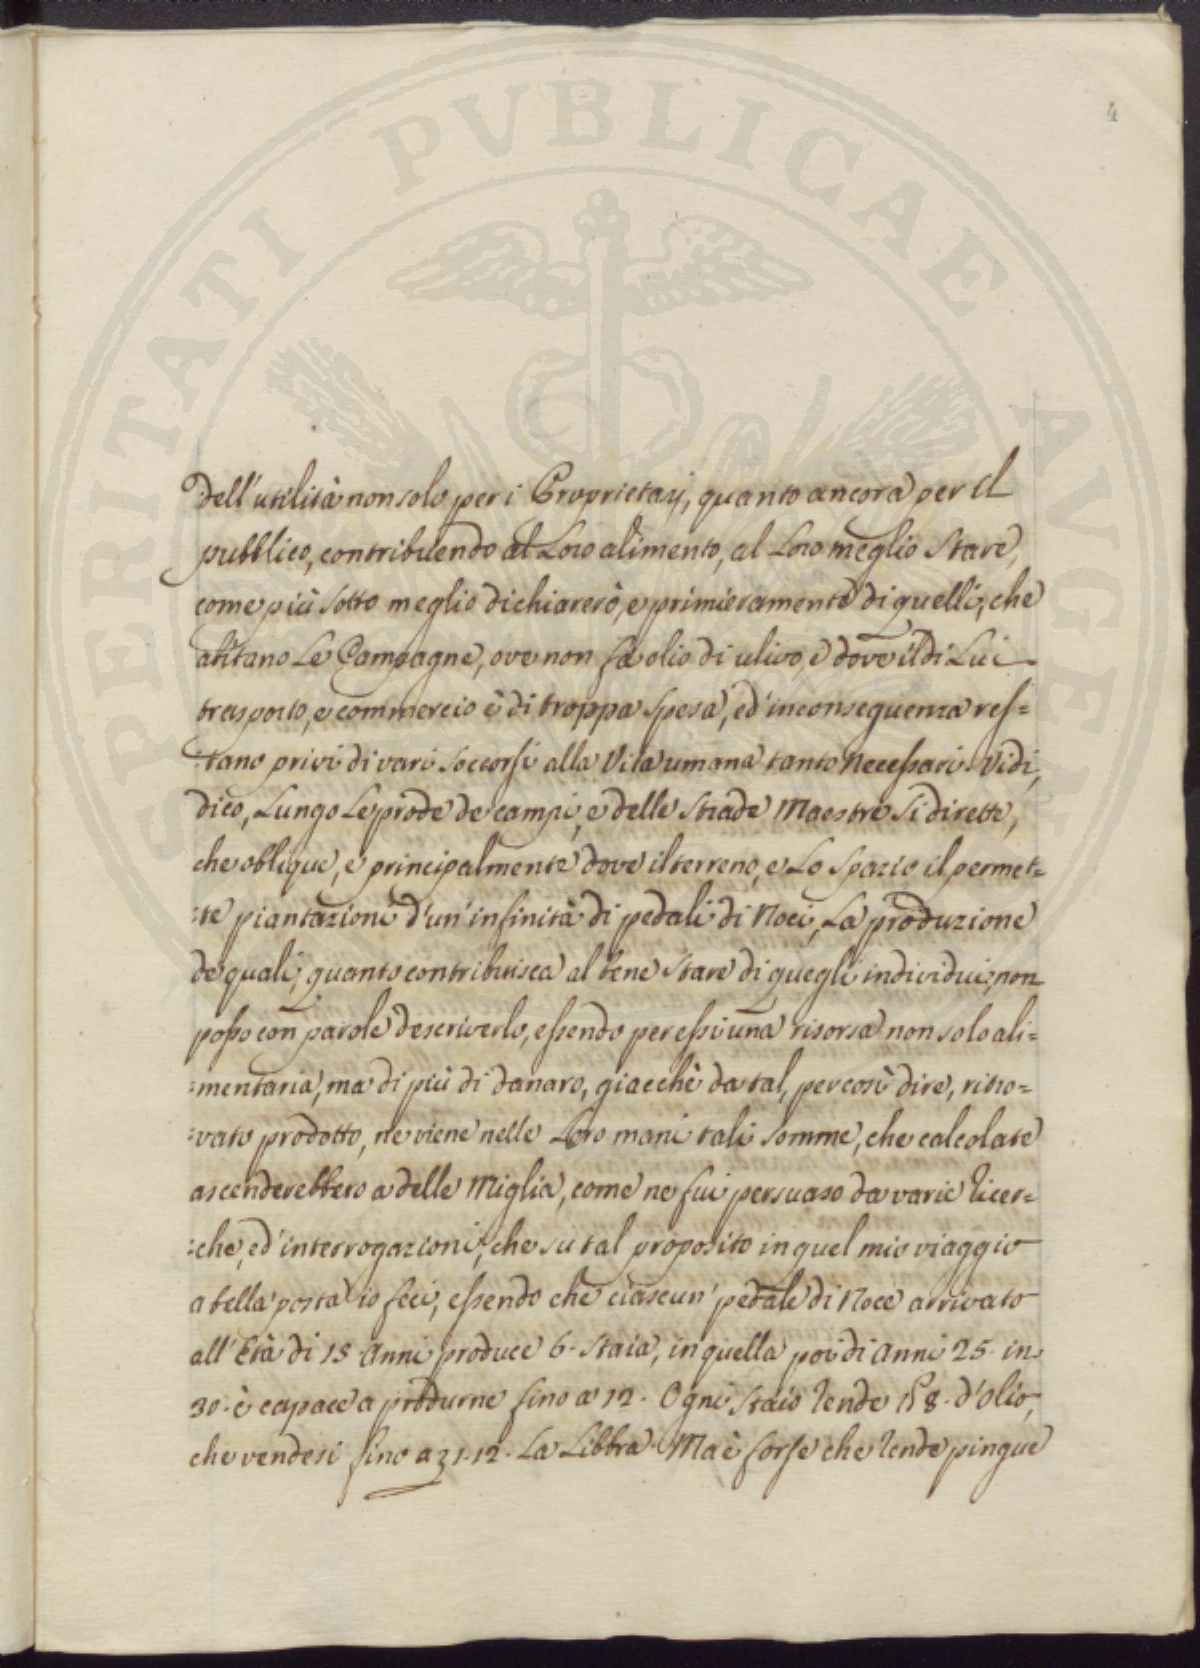 PROSPERITATI PVBLICAE AVGENDAE
4
Dell'utilità non solo per i Proprietarj, quanto ancora per il
pubblico, contribuendo al Loro alimento, al Loro meglio stare,
come più sotto meglio dichiarerò, e primieramente di quelli, che
abitano Le Campagne, ove non fa olio di ulivo, e dove il di Lui
trasporto, e commercio è di troppa spesa, ed' inconseguenza res=
=tano privi di vari soccorsi alla Vita umana tanto necessari. Vidi,
dico, Lungo Le prode de campi, e delle strade Maestre si dirette,
che oblique, e principalmente dove il terreno, e Lo spazio il permet=
=te piantazioni d'un' infinità di pedali di Noci, La produzione
de quali, quanto contribuisca al bene stare di quegli individui, non
posso con parole descriverlo, essendo per essi una risorsa non solo ali=
=mentaria, ma di più di danaro, giacchè da tal, per così dire, ritro=
=vato prodotto, ne viene nelle Loro mani tali somme, che calcolate
ascenderebbero a delle Miglia, come ne fui persuaso da varie ricer=
=che, ed' interrogazioni, che su tal proposito in quel mio viaggio
a bella posta io feci, essendo che ciascun' pedale di Noce arrivato
all' Età di 15 Anni produce 6. Staia, in quella poi di Anni 25. in
30. è capace a produrne fino a 12. Ogni Staio rende 8. d'Olio,
che vendesi fino a 1.12. La Libbra. Ma è forse che rende pingue